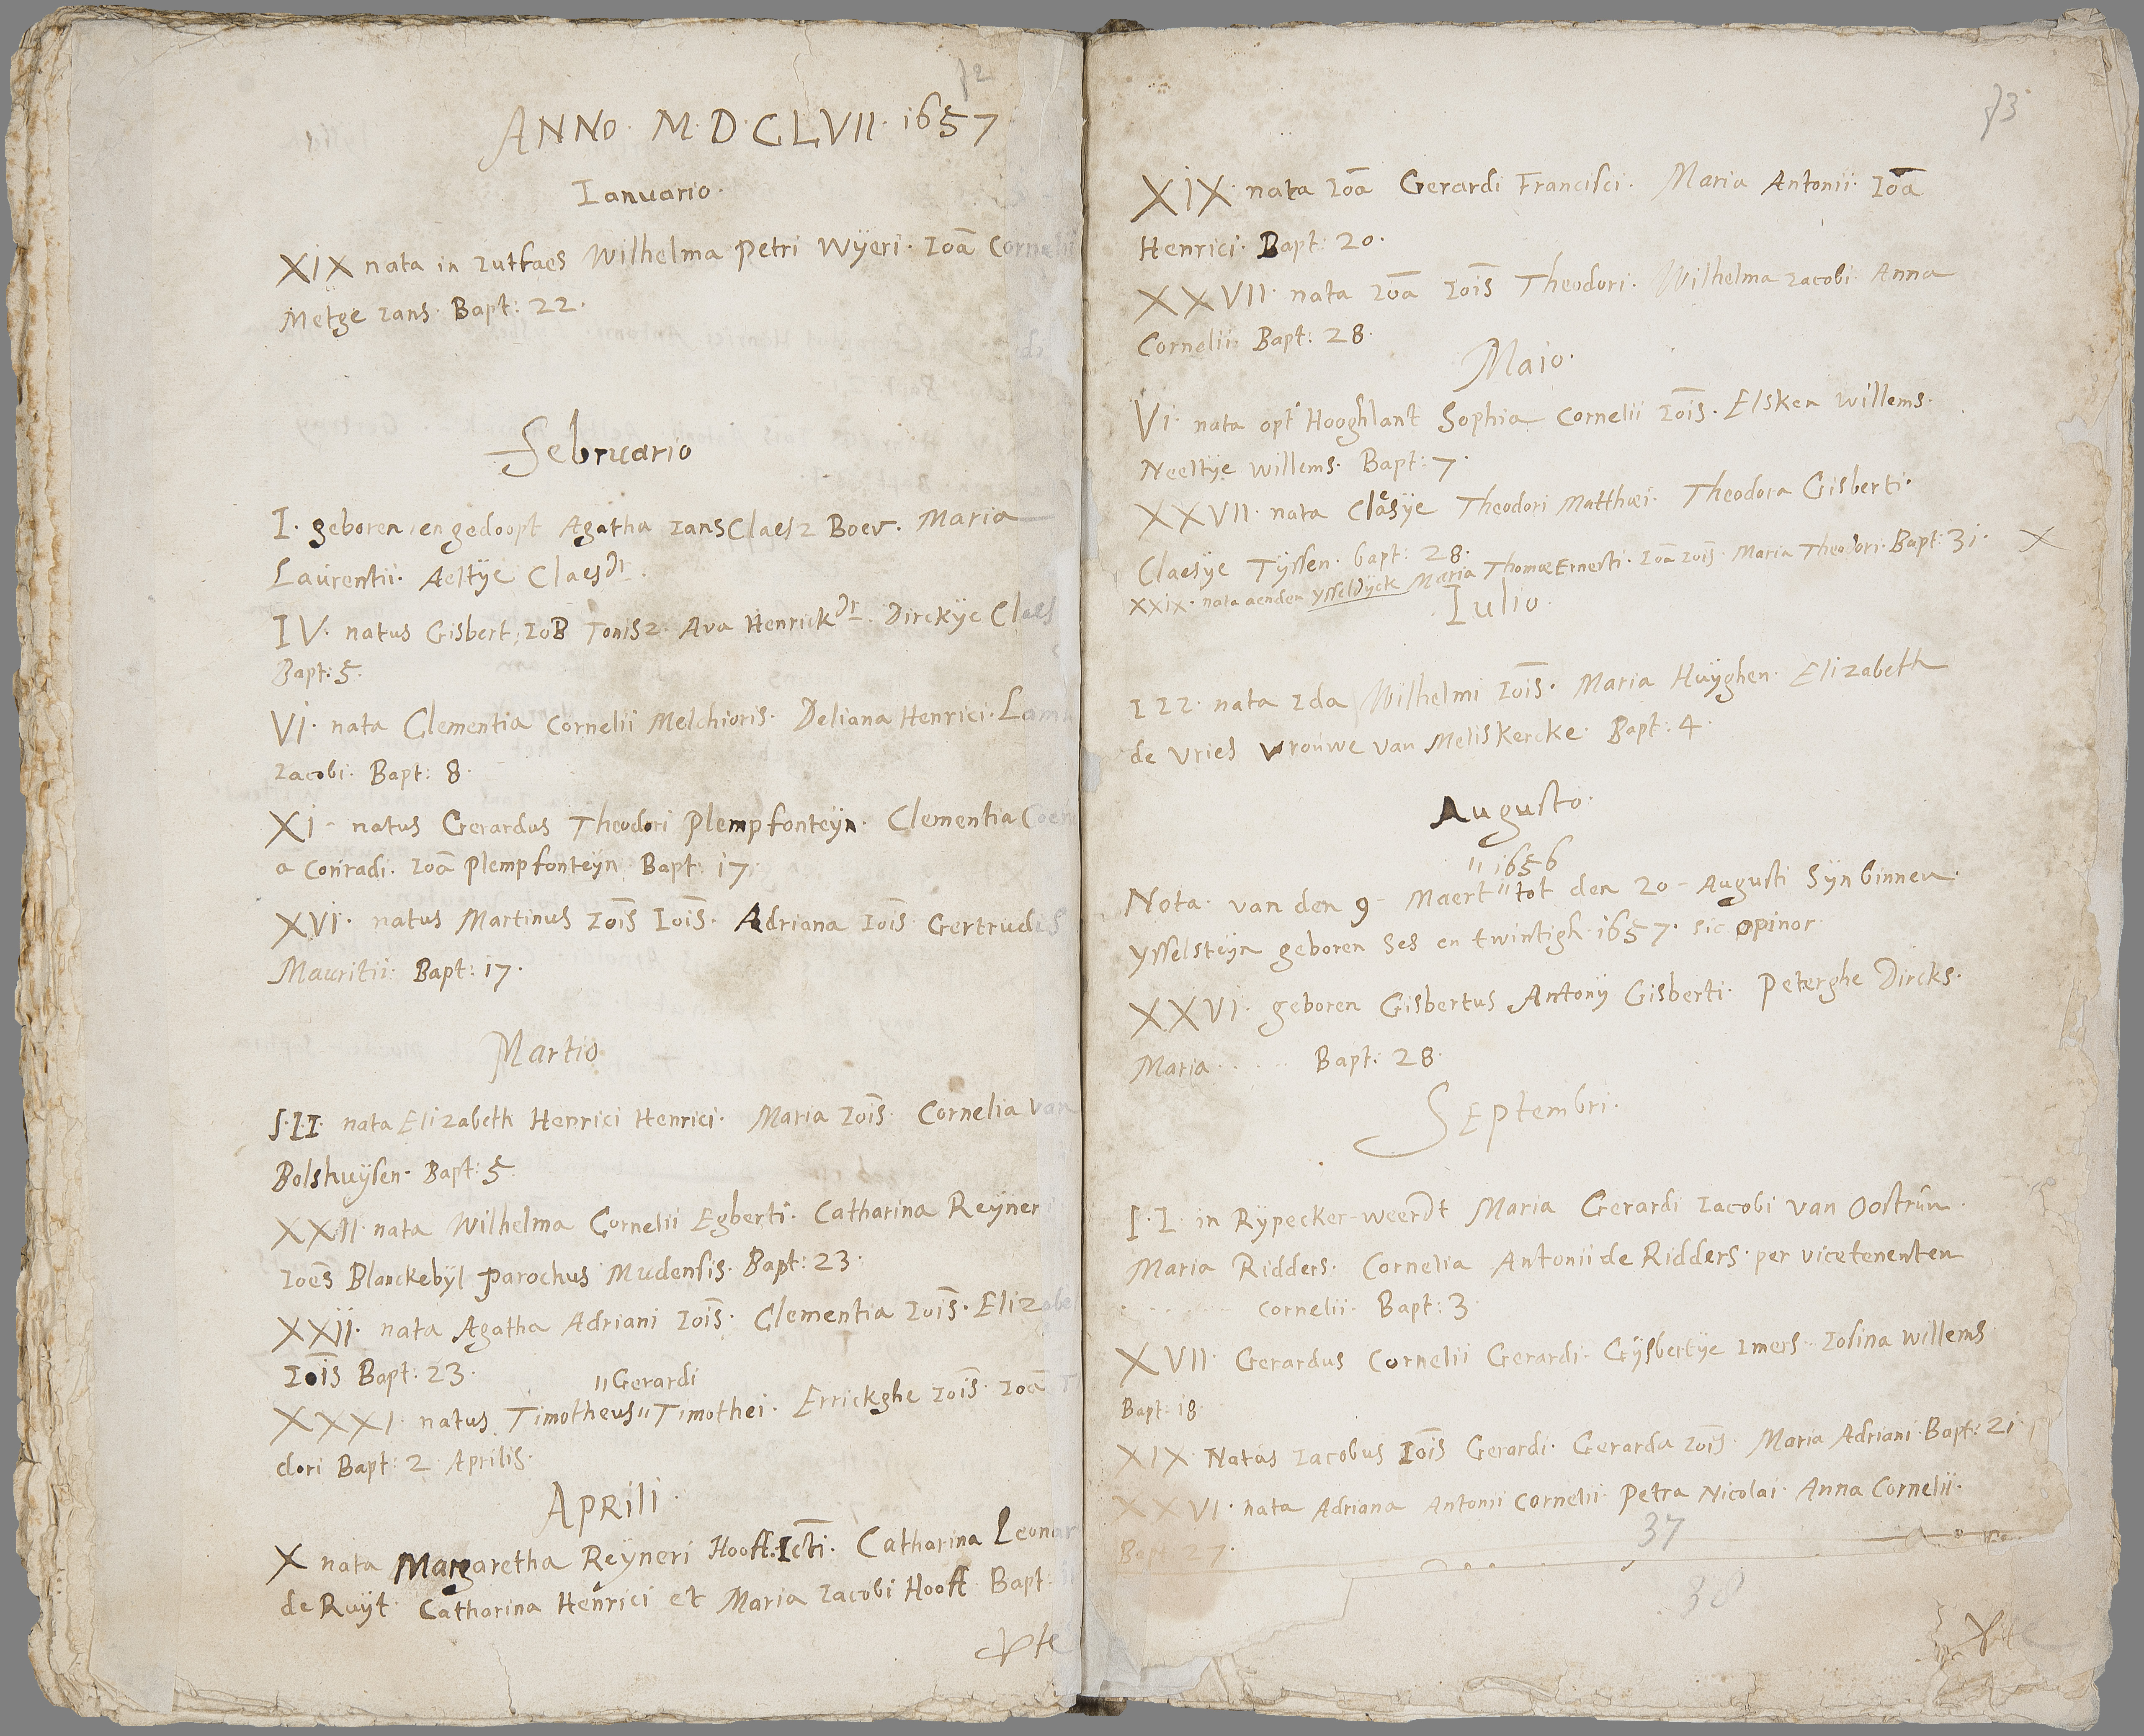 ANNO. M.D.CLVII. 1657
Ianuario.
XIX nata in Iutfaes Wilhelma Petri Wÿeri. Ioā Cornelii
Metge Ians. Bapt: 22.
Februario
I. geboren en gedoopt Agatha Ians Claesz Boev. Maria
Laurentii. Aeltÿe Claes dr.
IV. natus Gisbert IoB Tonisz. Ava Henrick Dr. Dirckÿe Claes
Bapt: 5.
VI. nata Clementia Cornelii Melchioris. Deliana Henrici.
Iacobi. Bapt: 8.
XI - natus Gerardus Theodori Plempfonteÿn. Clementia
a Conradi. Ioā Plempfonteÿn Bapt: 17.
XVI. natus Martinus Ioīs Ioīs. Adriana Ioīs Gertrudis
Mauritii. Bapt: 17.
Martio
I.I.I. nata Elizabeth Henrici Henrici. Maria Ioīs. Cornelia van
Bolshuÿsen. Bapt: 5
XXII nata Wilhelma Cornelii Egberti. Catharina Reyneri
Ioēs Blanckebÿl Parochus Mudensis. Bapt: 23.
XXII. nata Agatha Adriani Ioīs. Clementia Ioīs. Elizabet
Ioīs Bapt: 23.
"Gerardi
XXXI. natus Timotheus" Timothei. Errickghe Ioīs. Ioā
dori Bapt: 2 Aprilis.
APRILI.
X nata Margaretha Reÿneri Hooft. Icti. Catharina Leonar
de Ruÿt. Catharina Henrici et Maria Iacobi Hooft Bapt:
73
XIX. nata Ioā Gerardi Francisci. Maria Antonii. Ioā
Henrici. Bapt: 20.
XXVII. nata Ioā Ioīs Theodori. Wilhelma Iacobi Anna
Cornelii. Bapt: 28.
Maio.
VI. nata opt Hooghlant Sophia Cornelii Ioīs. Elsken willems.
Neeltÿe willems. Bapt: 7.
XXVII. nata Claesÿe Theodori Matthæi. Theodora Gisberti.
Claesÿe Tÿssen. bapt: 28.
XXIX. nata aenden ÿsseldÿck Maria Thomæ Ernesti. Ioā Ioīs. Maria Theodori. Bapt: 31. X
Iulio.
III. nata Ida Wilhelmi Ioīs. Maria Huÿghen. Elizabeth
de Vries Vrouwe van Meliskercke. Bapt: 4.
Augusto.
" 1656
Nota. van den 9 - Maert " tot den 20 - Augusti Sÿn binnen.
ÿsselsteÿn geboren ses en twintigh. 1657. sic opinor
XXVI. geboren Gisbertus Antonÿ Gisberti. Peterghe Dircks.
Maria . . . . . Bapt: 28
SEptembri.
I.I. in Rÿpecker-weerdt Maria Gerardi Iacobi van Oostrum.
Maria Ridders. Cornelia Antonii de Ridders. per vicetenenten
. . . . . . . Cornelii. Bapt: 3
XVII. Gerardus Cornelii Gerardi. Gÿsbertÿe Imers. Iosina willems
Bapt: 18
XIX. Natus Iacobus Ioīs Gerardi. Gerarda Ioīs. Maria Adriani. Bapt: 21
XXVI. nata Adriana Antonii Cornelii. Petra Nicolai. Anna Cornelii.
Bapt 27.
37
38